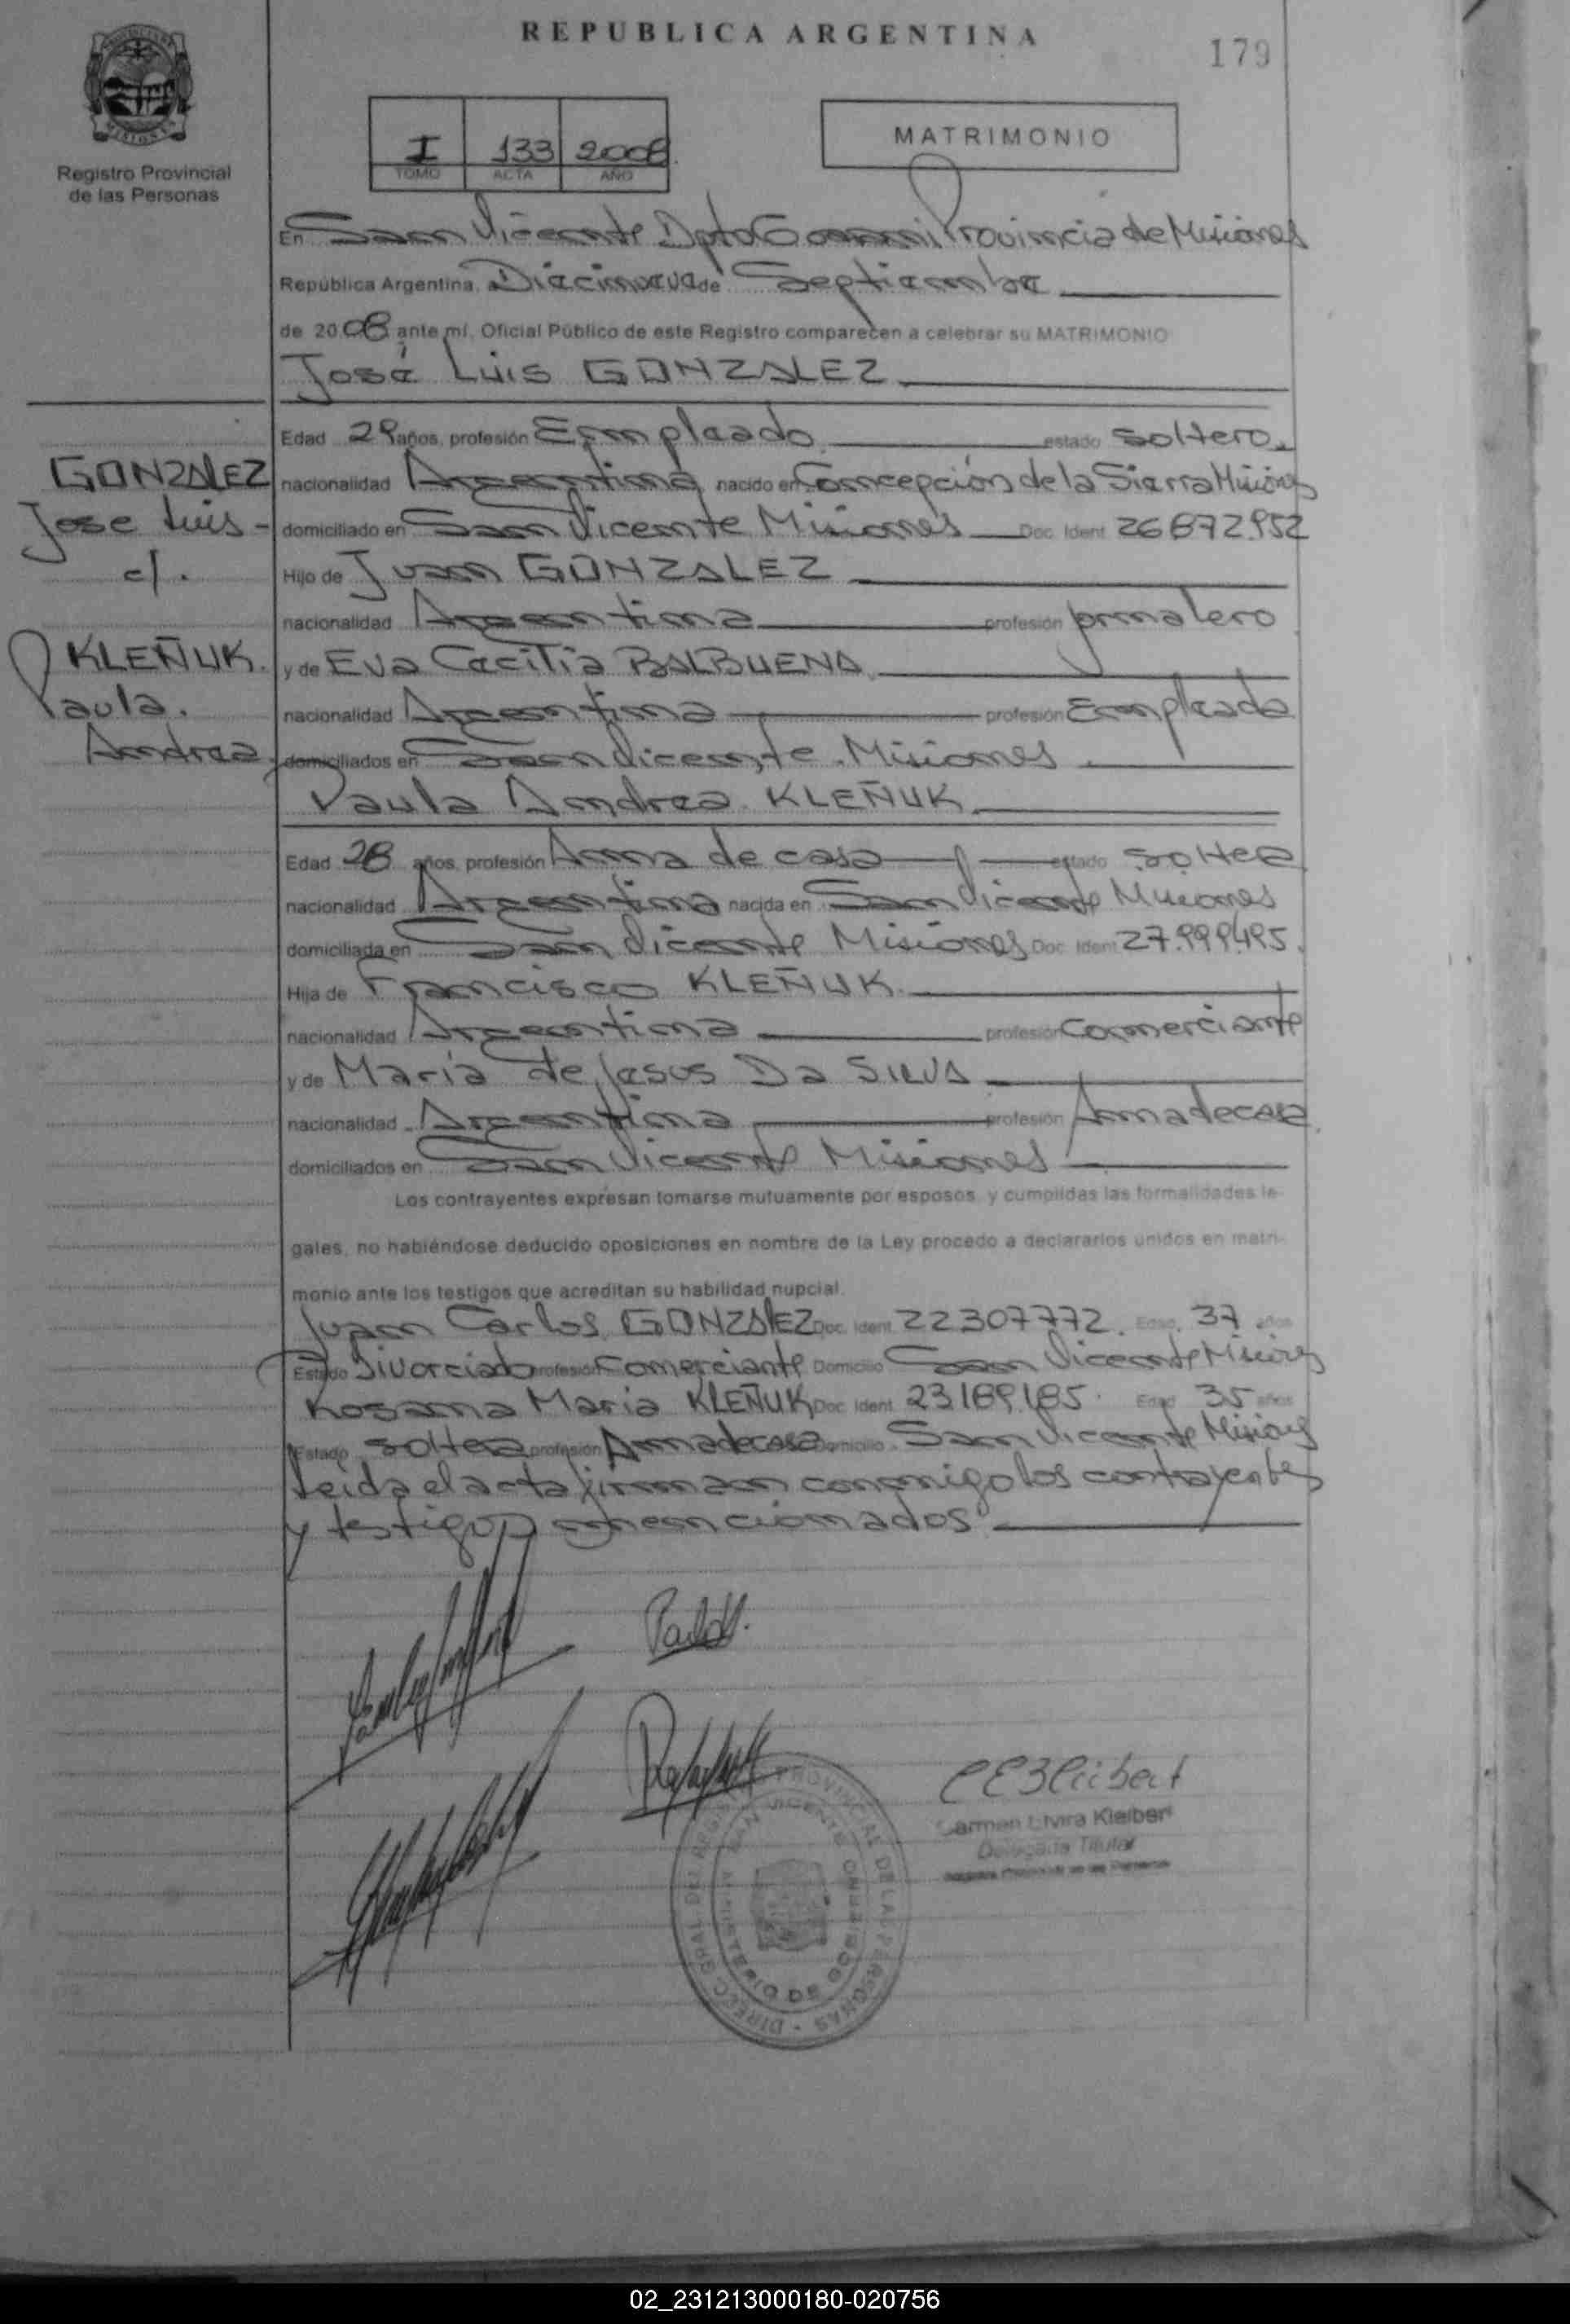 REPUBLICA ARGENTINA
179
PROVINCIA DE MISIONES
Registro Provincial
de las Personas
I 133 2008
TOMO ACTA AÑO
MATRIMONIO
En San Vicente Dpto Guaraní Provincia de Misiones
República Argentina, a Diecinueve de Septiembre
de 2008 ante mí, Oficial Público de este Registro comparecen a celebrar su MATRIMONIO
José Luis GONZALEZ
Edad 29 años, profesión Empleado estado soltero
nacionalidad Argentina nacido en Concepción de la Sierra Misiones
domiciliado en San Vicente Misiones Doc. Ident. 26872952
Hijo de Juan GONZALEZ
nacionalidad Argentina profesión jornalero
y de Eva Cecilia BALBUENA
nacionalidad Argentina profesión Empleada
domiciliados en San Vicente Misiones
GONZALEZ
Jose Luis -
c/.
KLEÑUK.
Paula.
Andrea
Paula Andrea KLEÑUK
Edad 28 años, profesión Ama de casa estado soltera
nacionalidad Argentina nacida en San Vicente Misiones
domiciliada en San Vicente Misiones Doc. Ident. 27.999.495.
Hija de Francisco KLEÑUK.
nacionalidad Argentina profesión Comerciante
y de María de Jesus Da SILVA
nacionalidad Argentina profesión Ama de casa
domiciliados en San Vicente Misiones
Los contrayentes expresan tomarse mutuamente por esposos y cumplidas las formalidades le-
gales, no habiéndose deducido oposiciones en nombre de la Ley procedo a declararlos unidos en matri-
monio ante los testigos que acreditan su habilidad nupcial.
Juan Carlos GONZALEZ Doc. Ident. 22307772. Edad. 37 años
Estado Divorciado profesión Comerciante Domicilio San Vicente Misiones
Rosana Maria KLEÑUK Doc. Ident. 23189185. Edad 35 años
Estado soltera profesión Ama de casa Domicilio San Vicente Misiones
Leida el acta firman conmigo los contrayentes
y testigos mencionados
Carmen Elvira Kleibert
Delegada Titular
Registro Provincial de las Personas
DIRECC. GRAL. DEL REGISTRO PROVINCIAL DE LAS PERSONAS
SAN VICENTE
MINISTERIO DE GOBIERNO
02_231213000180-020756